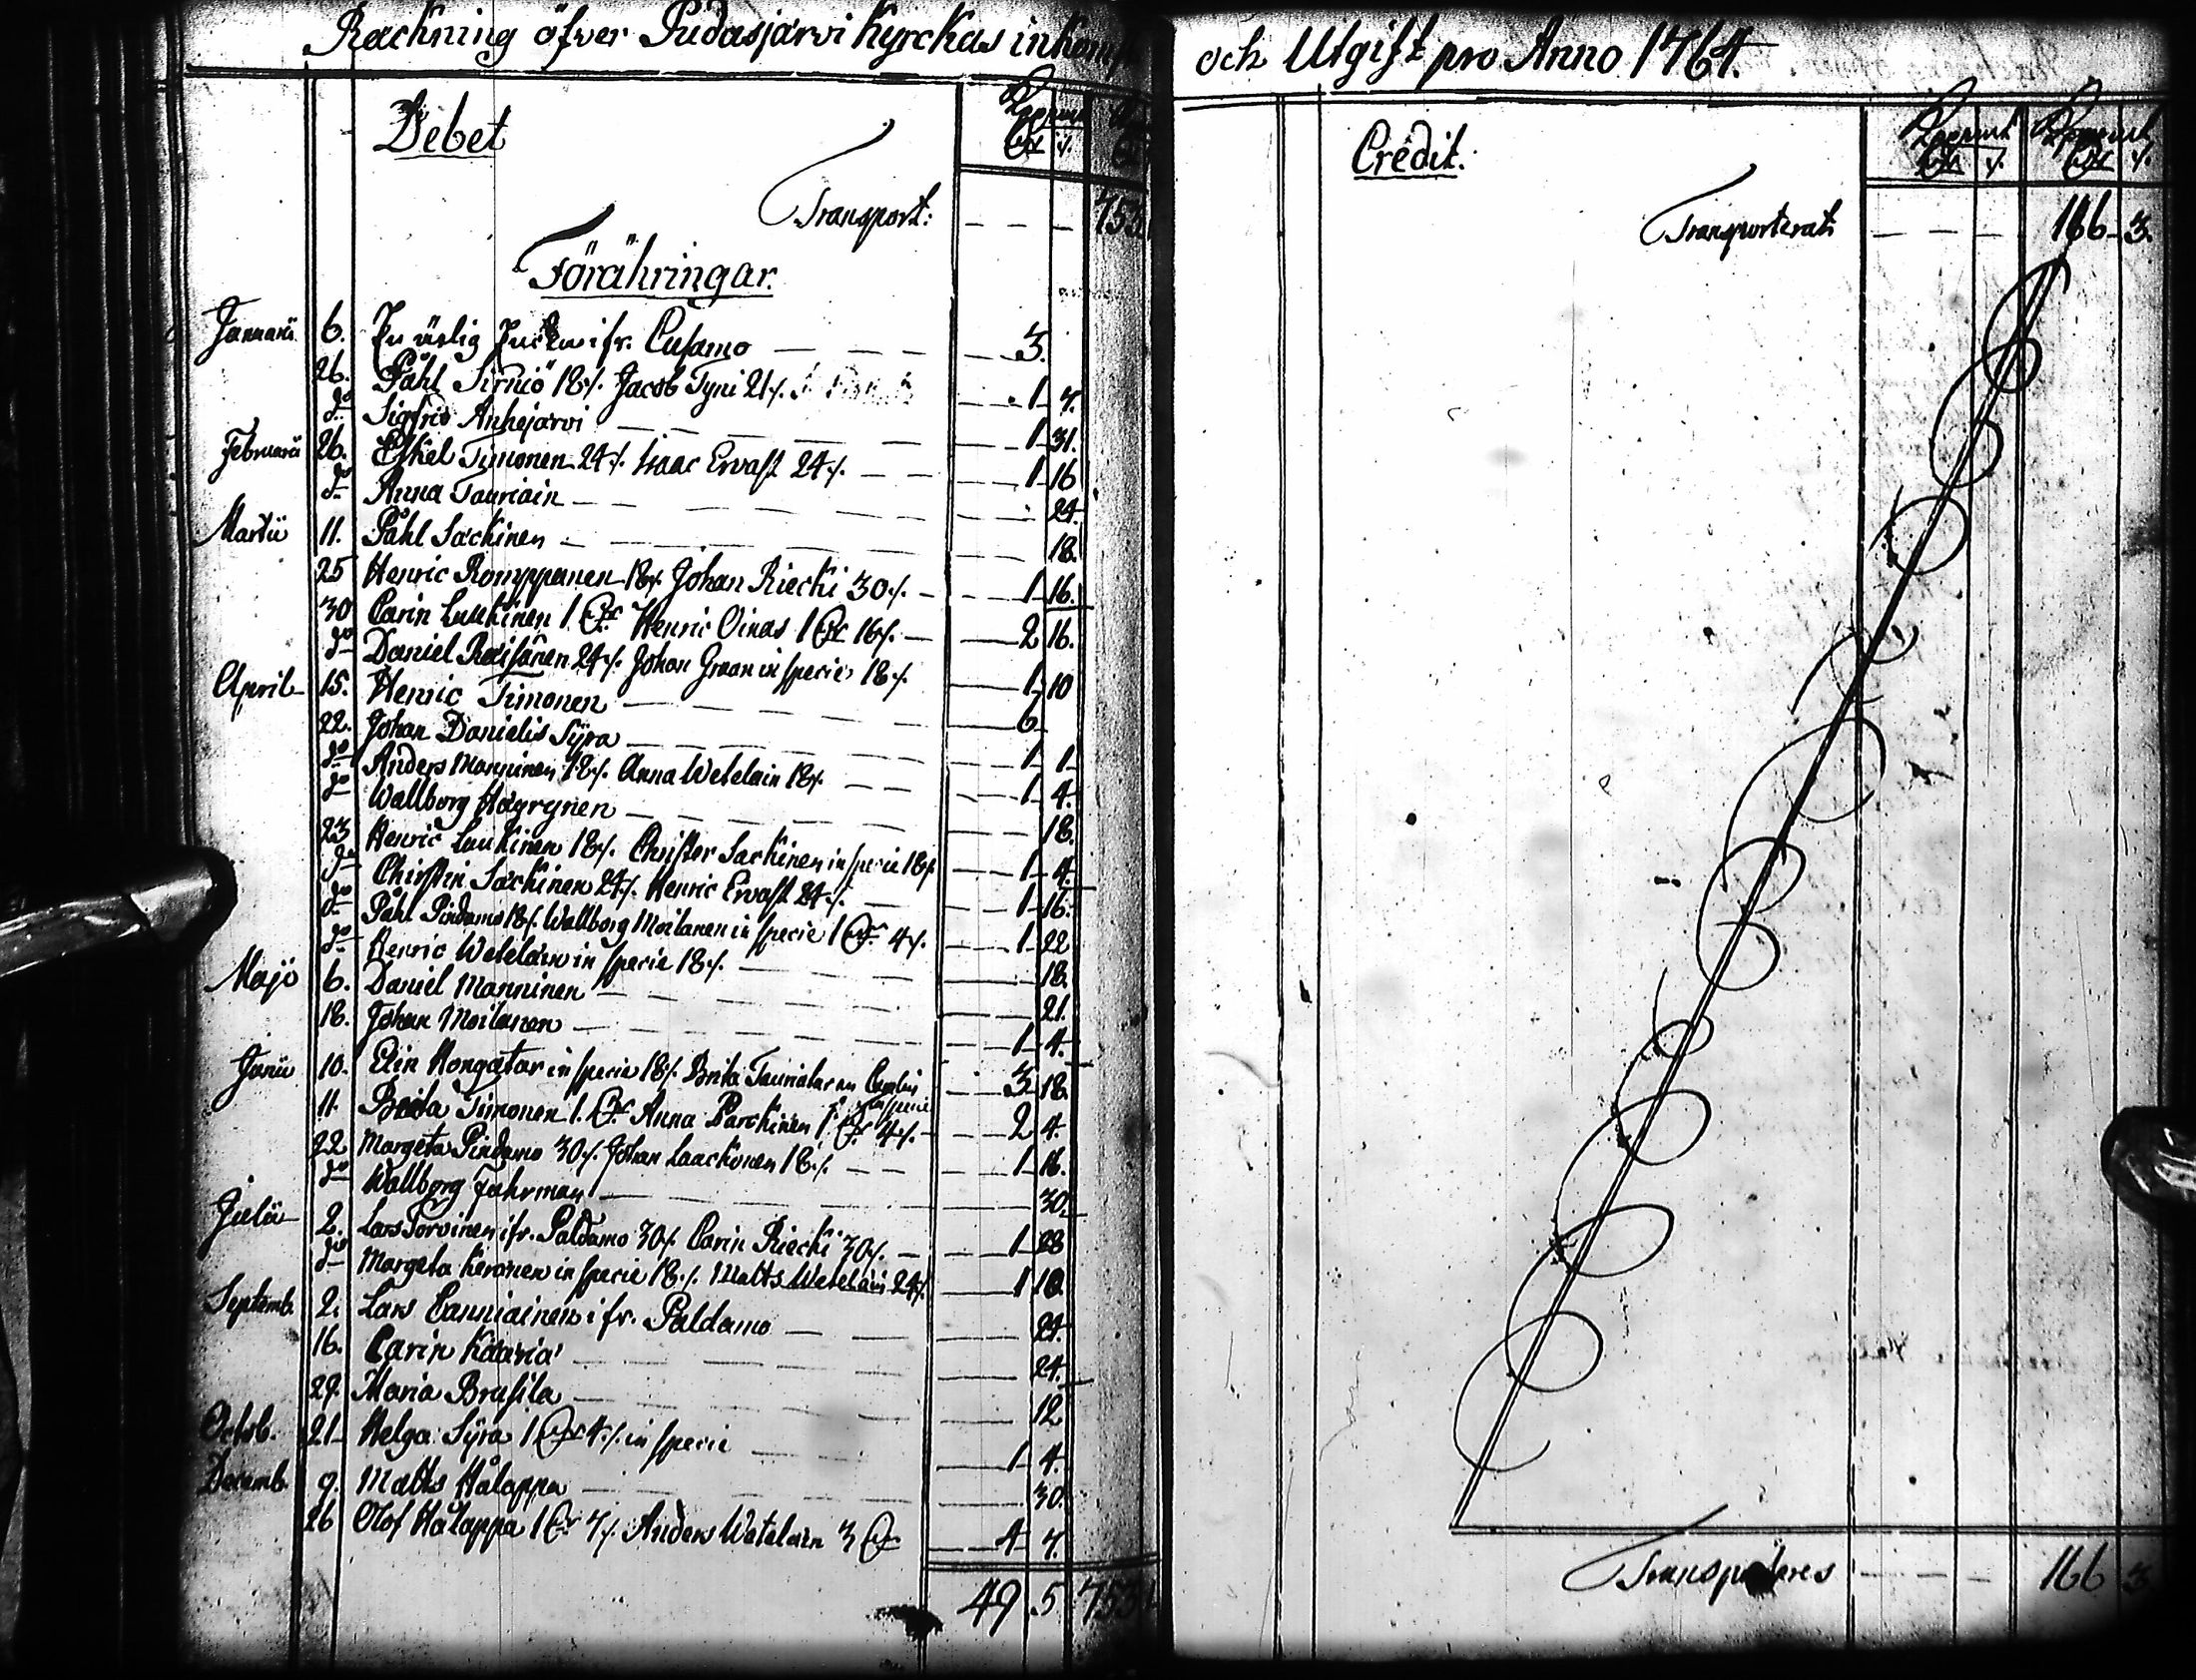 Räckning öfver Pudasjärvi Kyrckas inkomst
Debet
Transport: 753
Förähringar.
Januarii 6. En ärlig Enckia ifr. Cusamo 3.
26. Påhl Sirniö 18/. Jacob Tyni 21/. 1 7.
do Sigfrid Anhejärvi 1 31.
Februarii 26. Eskel Timonen 24/. Isaac Ervast 24/. 1 16
do Anna Tauriain 24.
Martii 11. Påhl Säckinen 18.
25 Henric Romppanen 18/. Johan Riecki 30/. 1 16.
30 Carin Luukinen 1 Henric Oinas 1 16/. 2 16.
do Daniel Räisänen 24/. Johan Graan in specie 18/. 1 10
April 15. Henric Timonen 6
22. Johan Danielis Syra 1 1
do Anders Manninen 18/. Anna Wetelain 18/. 1 4.
do Wallborg Häyrynen 18.
23 Henric Luukinen 18/. Christer Säckinen in specie 18/. 1 4.
do Chirstin Säckinen 24/. Henric Ervast 24/. 1 16.
do Påhl Pindamo 18/. Wallborg Moilanen in specie 1 4/. 1 22
do Henric Wetelain in specie 18/. 18.
Majo 6. Daniel Manninen 21.
18. Johan Moilanen 1 4.
Junii 10. Elin Hongatar in specie 18/. Brita Tauriatar 3 18.
11. Brita Timonen 1. Anna Parckinen 1 in specie 4/. 2 4.
22 Margeta Pindamo 30/. Johan Laackonen 18/. 1 16.
do Wallborg Fuhrman 30.
Julii 2. Lars Torvinen ifr. Paldamo 30/. Carin Riecki 30/. 1 28
do Margeta Keronen in specie 18/. Matts Wetelain 24/. 1 10
Septemb. 2. Lars Canniainen ifr. Paldamo 24.
16. Carin Kääriä 24.
29. Maria Brusila 12
Octob. 21 Helga Syra 1 4/. in specie 1 4.
Decemb. 9. Matts Hålappa 30.
26 Olof Hålappa 1 7/. Anders Wetelain 3 4 7.
49 5 753
och Utgift pro Anno 1764.
Credit.
Transporterat 166 3.
Transporteres 166 3